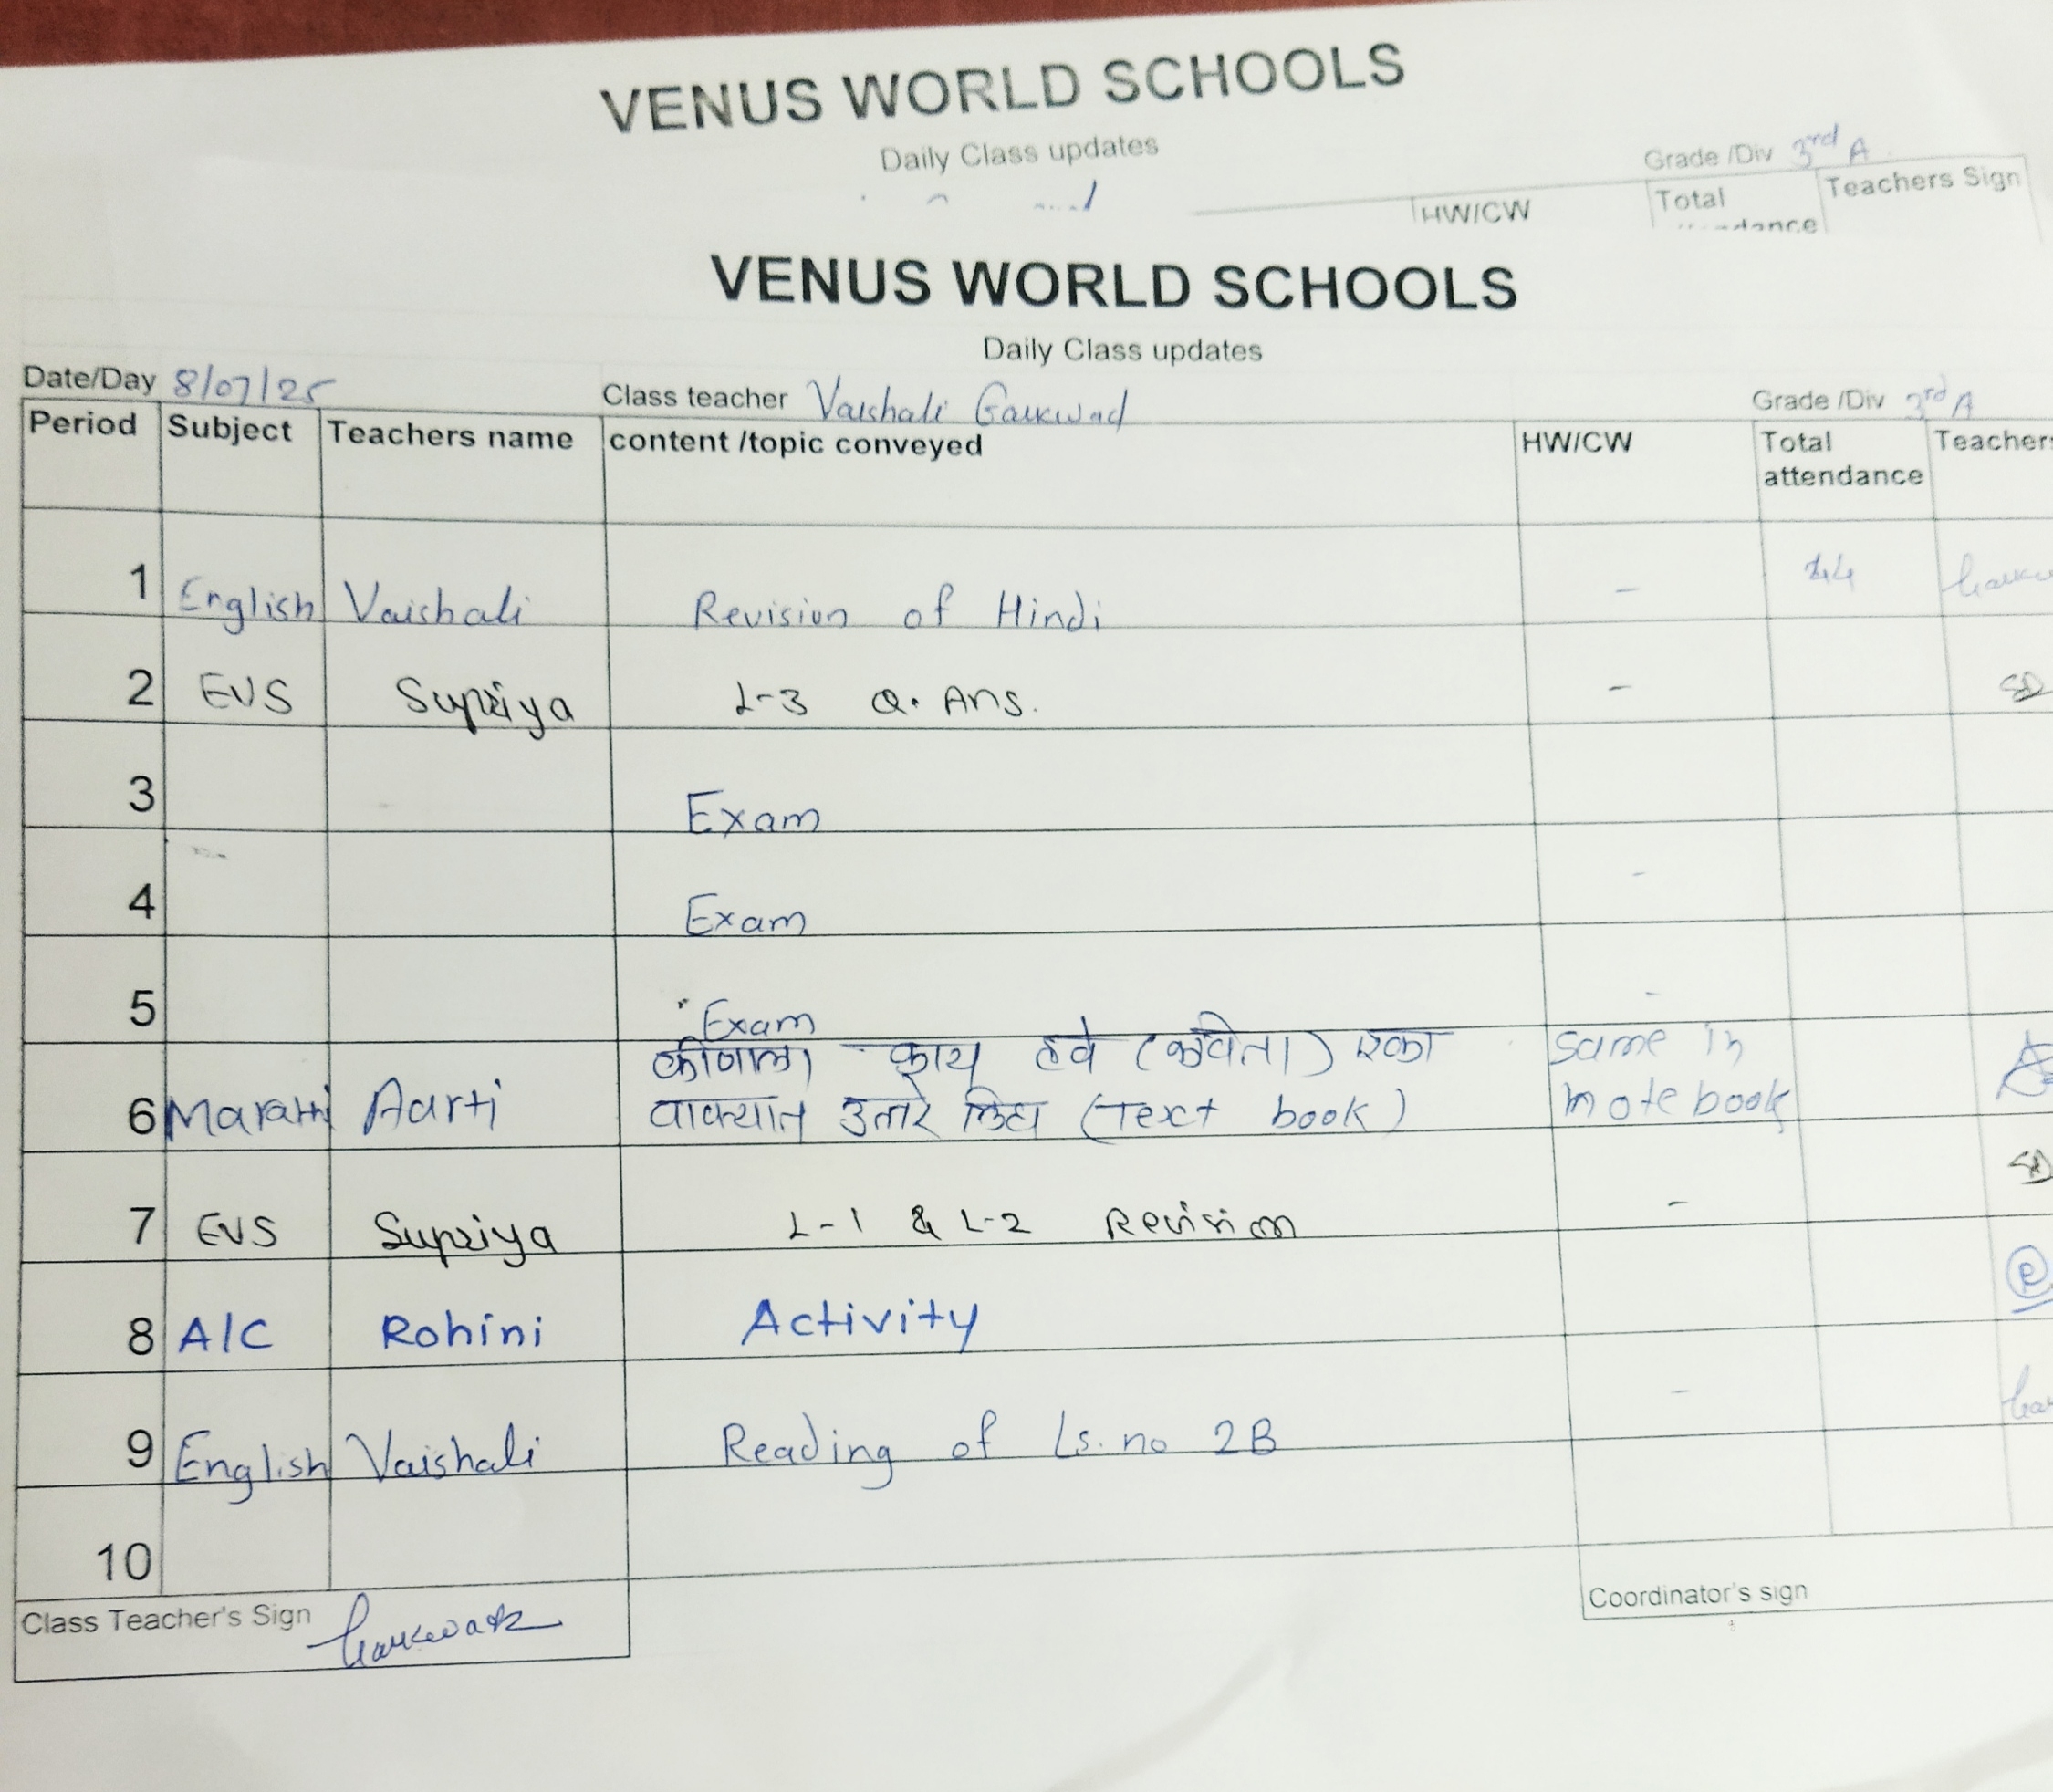 VENUS WORLD SCHOOLS
Daily Class updates
Grade /Div 3rd A
HW/CW Total Teachers Sign
VENUS WORLD SCHOOLS
Daily Class updates
Date/Day 8/07/25 Class teacher Vaishali Gaikwad Grade /Div 3rd A
Period Subject Teachers name content /topic conveyed HW/CW Total Teachers
attendance
1 English Vaishali Revision of Hindi -
2 EVS Supriya L-3 Q. Ans. -
3 Exam
4 Exam -
5 Exam -
कोणाला काय हवे (कविता) एका same in
6 Marathi Aarti वाक्यात उत्तरे लिहा (Text book) notebook
7 EVS Supriya L-1 & L-2 Revision -
8 A/C Rohini Activity
9 English Vaishali Reading of Ls. no 2B -
10
Class Teacher's Sign Coordinator's sign